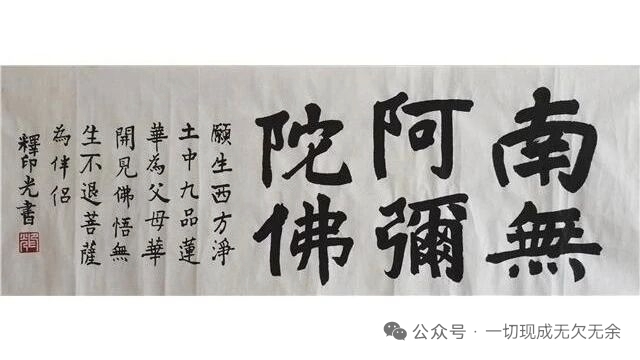 南無
阿彌
陀佛
願生西方淨
土中九品蓮
華為父母華
開見佛悟無
生不退菩薩
為伴侶
釋印光書
公众号·一切现成无欠无余